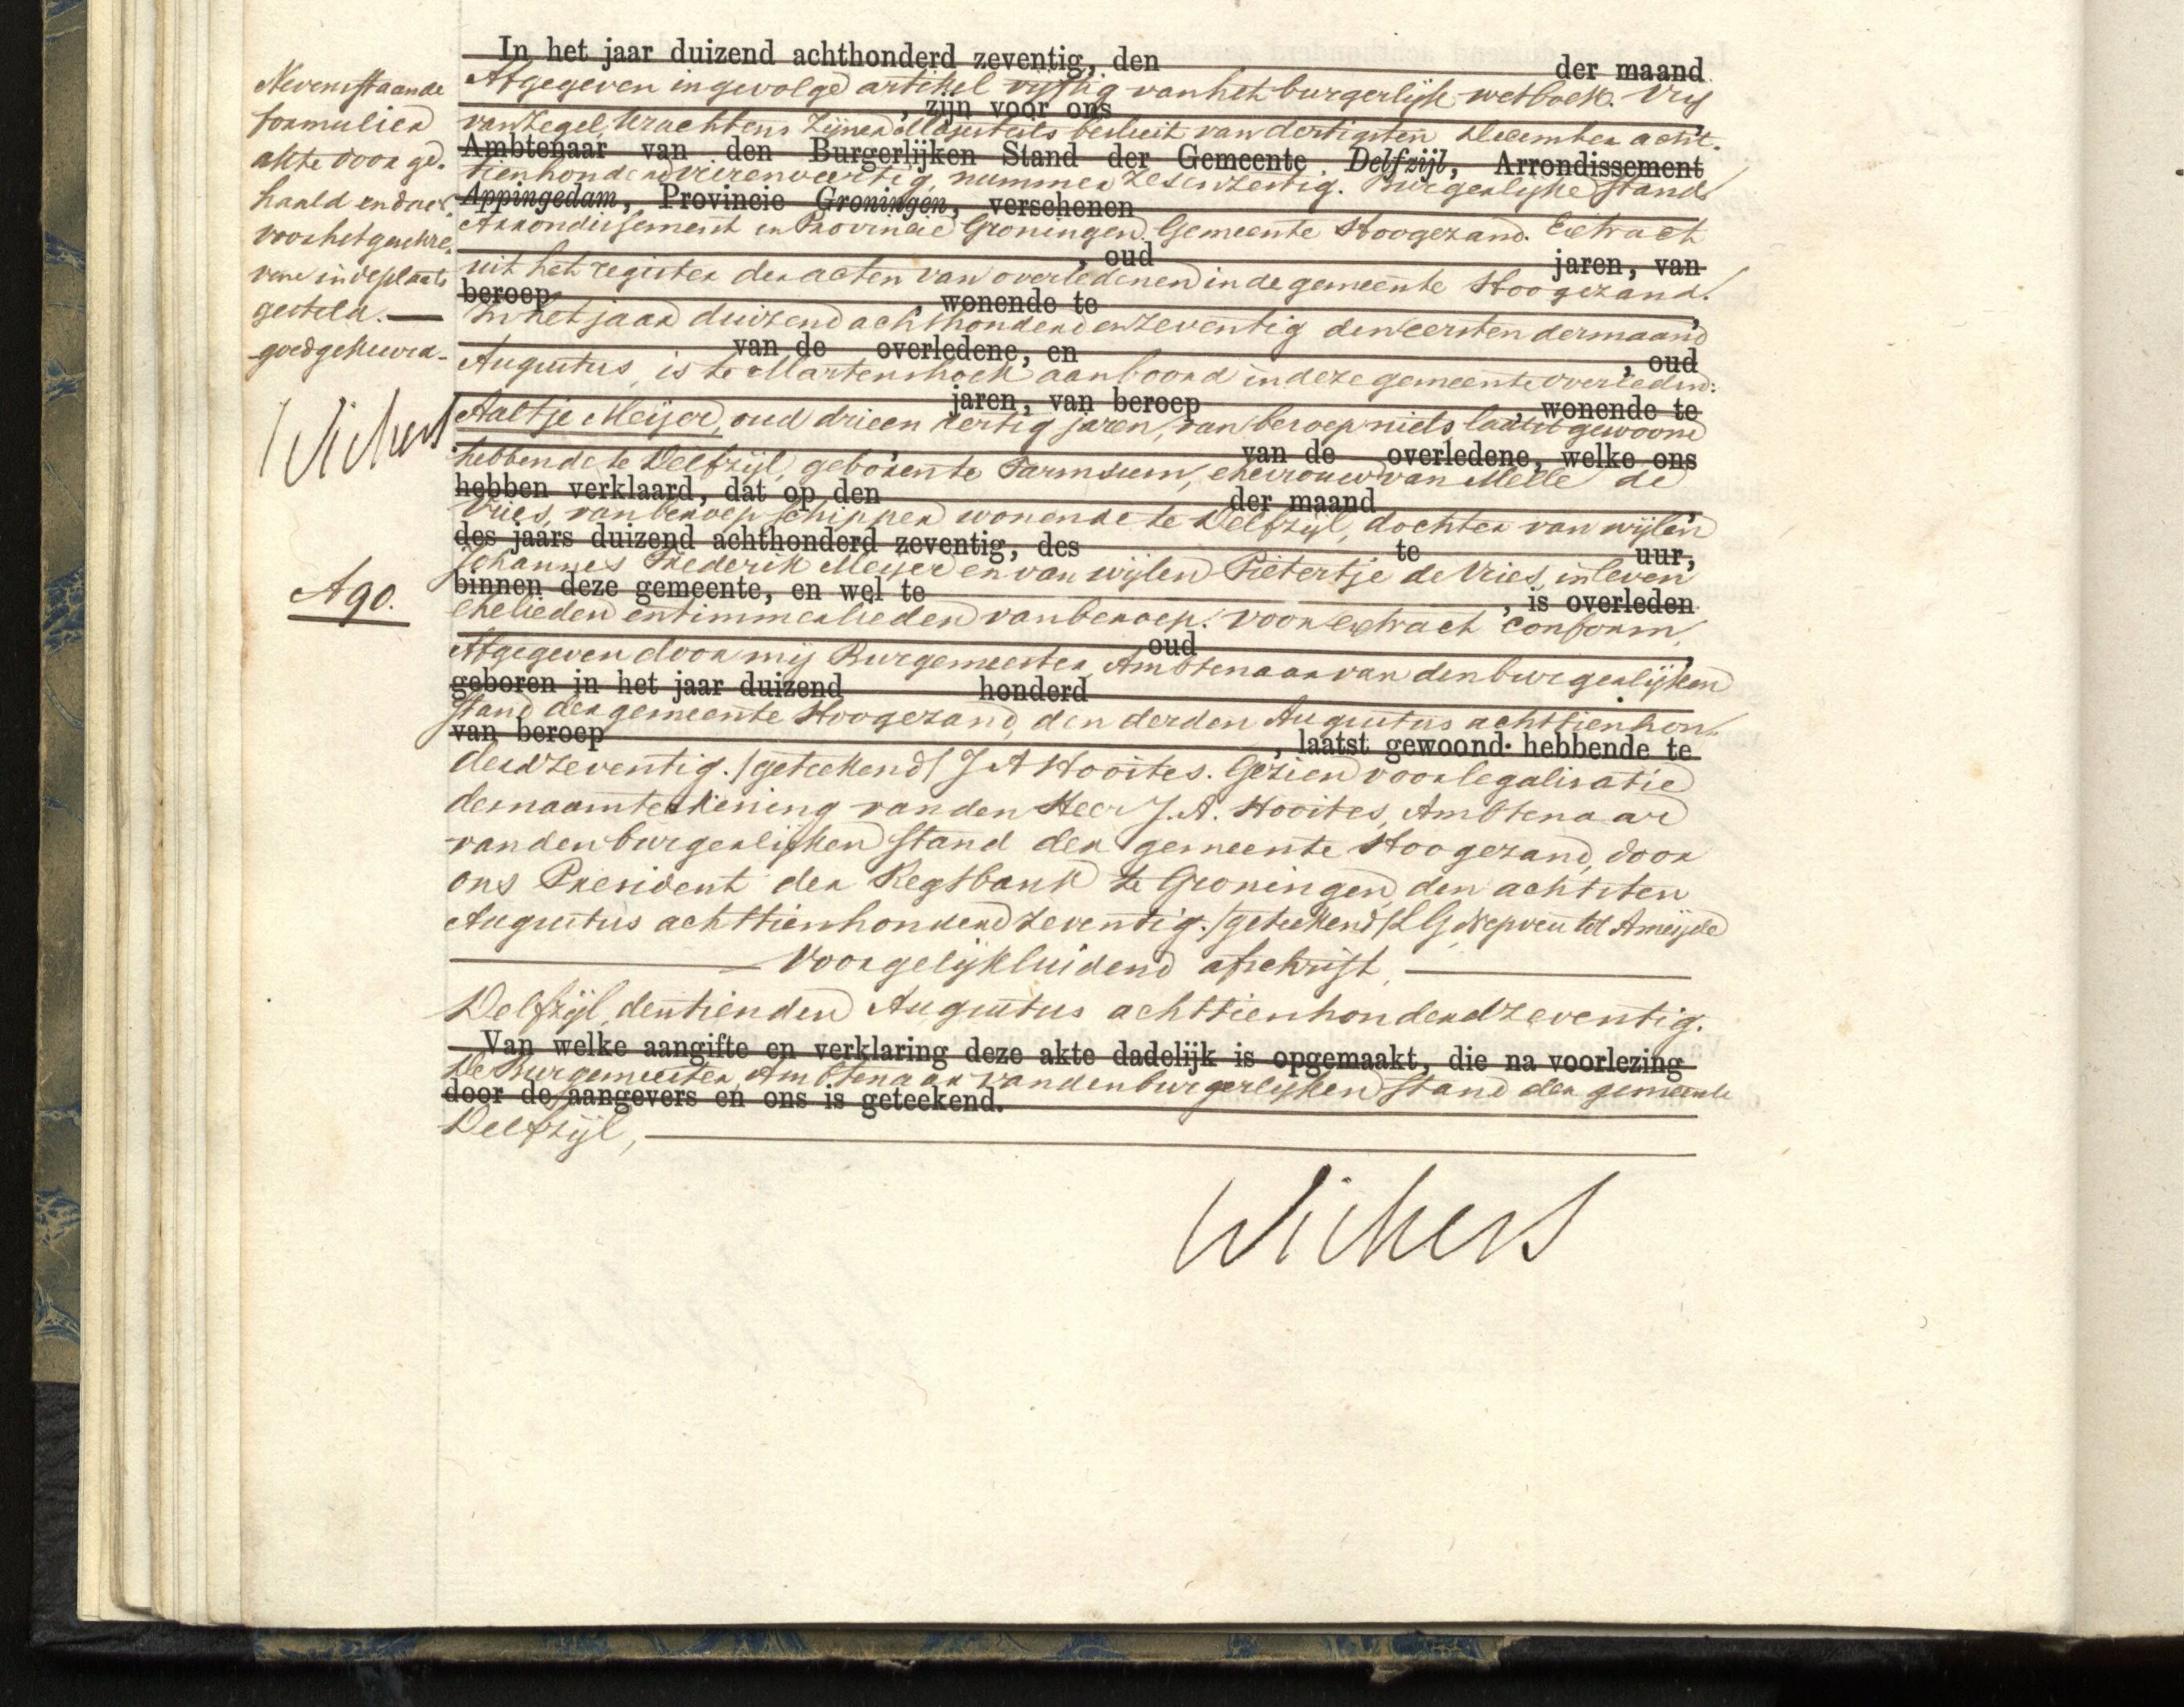 Nevenstaande
formulier
akte door ge-
haald en daar-
voor het geschre-
vene in de plaats
gesteld.
goedgekeurd.
Wichers
A 90.
In het jaar duizend achthonderd zeventig, den der maand
Afgegeven ingevolge artikel vijftig van het burgerlijk wetboek. Vrij
, zijn voor ons
van Zegel, krachtens Zijner Majesteits besluit van dertigsten December acht-
Ambtenaar van den Burgerlijken Stand der Gemeente Delfzijl, Arrondissement
tienhonderd vierenveertig, nummer zesenzestig. Burgerlijke Stand
Appingedam, Provincie Groningen, verschenen
Arrondissement en Provincie Groningen. Gemeente Hoogezand. Extract
, oud jaren, van
uit het register der acten van overledenen in de gemeente Hoogezand.
beroep , wonende te ,
In het jaar duizend achthonderd en zeventig den eersten der maand
van de overledene, en , oud
Augustus, is te Martenshoek aan boord in deze gemeente overleden:
jaren, van beroep , wonende te
Aaltje Meijer, oud drieen dertig jaren, van beroep niets laatst gewoond
van de overledene, welke ons
hebbende te Delfzijl, geboren te Farmsum, ehevrouw van Melle de
hebben verklaard, dat op den der maand ,
Vries, van beroep schipper wonende te Delfzijl, dochter van wijlen
des jaars duizend achthonderd zeventig, des te uur,
Johannes Frederik Meijer en van wijlen Pietertje de Vries, in leven
binnen deze gemeente, en wel te , is overleden
ehelieden en timmerlieden van beroep. Voor extract conform,
oud ,
Afgegeven door mij Burgemeester, Ambtenaar van den burgerlijken
geboren in het jaar duizend honderd
stand der gemeente Hoogezand, den derden Augustus achttienhon-
van beroep , laatst gewoond hebbende te
derd zeventig. /geteekend/ J A Hooites. Gezien voor legalisatie
der naamteekening van den Heer J. A. Hooites, Ambtenaar
van den burgerlijken stand der gemeente Hoogezand, door
ons President der Regtbank te Groningen, den achtsten
Augustus achttienhonderd zeventig. /geteekend/ L G Nepveu tot Ameijde
Voor gelijkluidend afschrift,
Delfzijl, den tienden Augustus achttienhonderd zeventig.
Van welke aangifte en verklaring deze akte dadelijk is opgemaakt, die na voorlezing
De Burgemeester, Ambtenaar van den burgerlijken stand der gemeente
door de aangevers en ons is geteekend.
Delfzijl,
Wichers